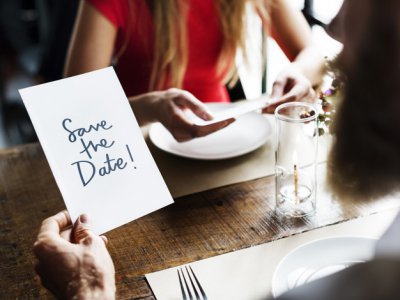 Save
the
Date!